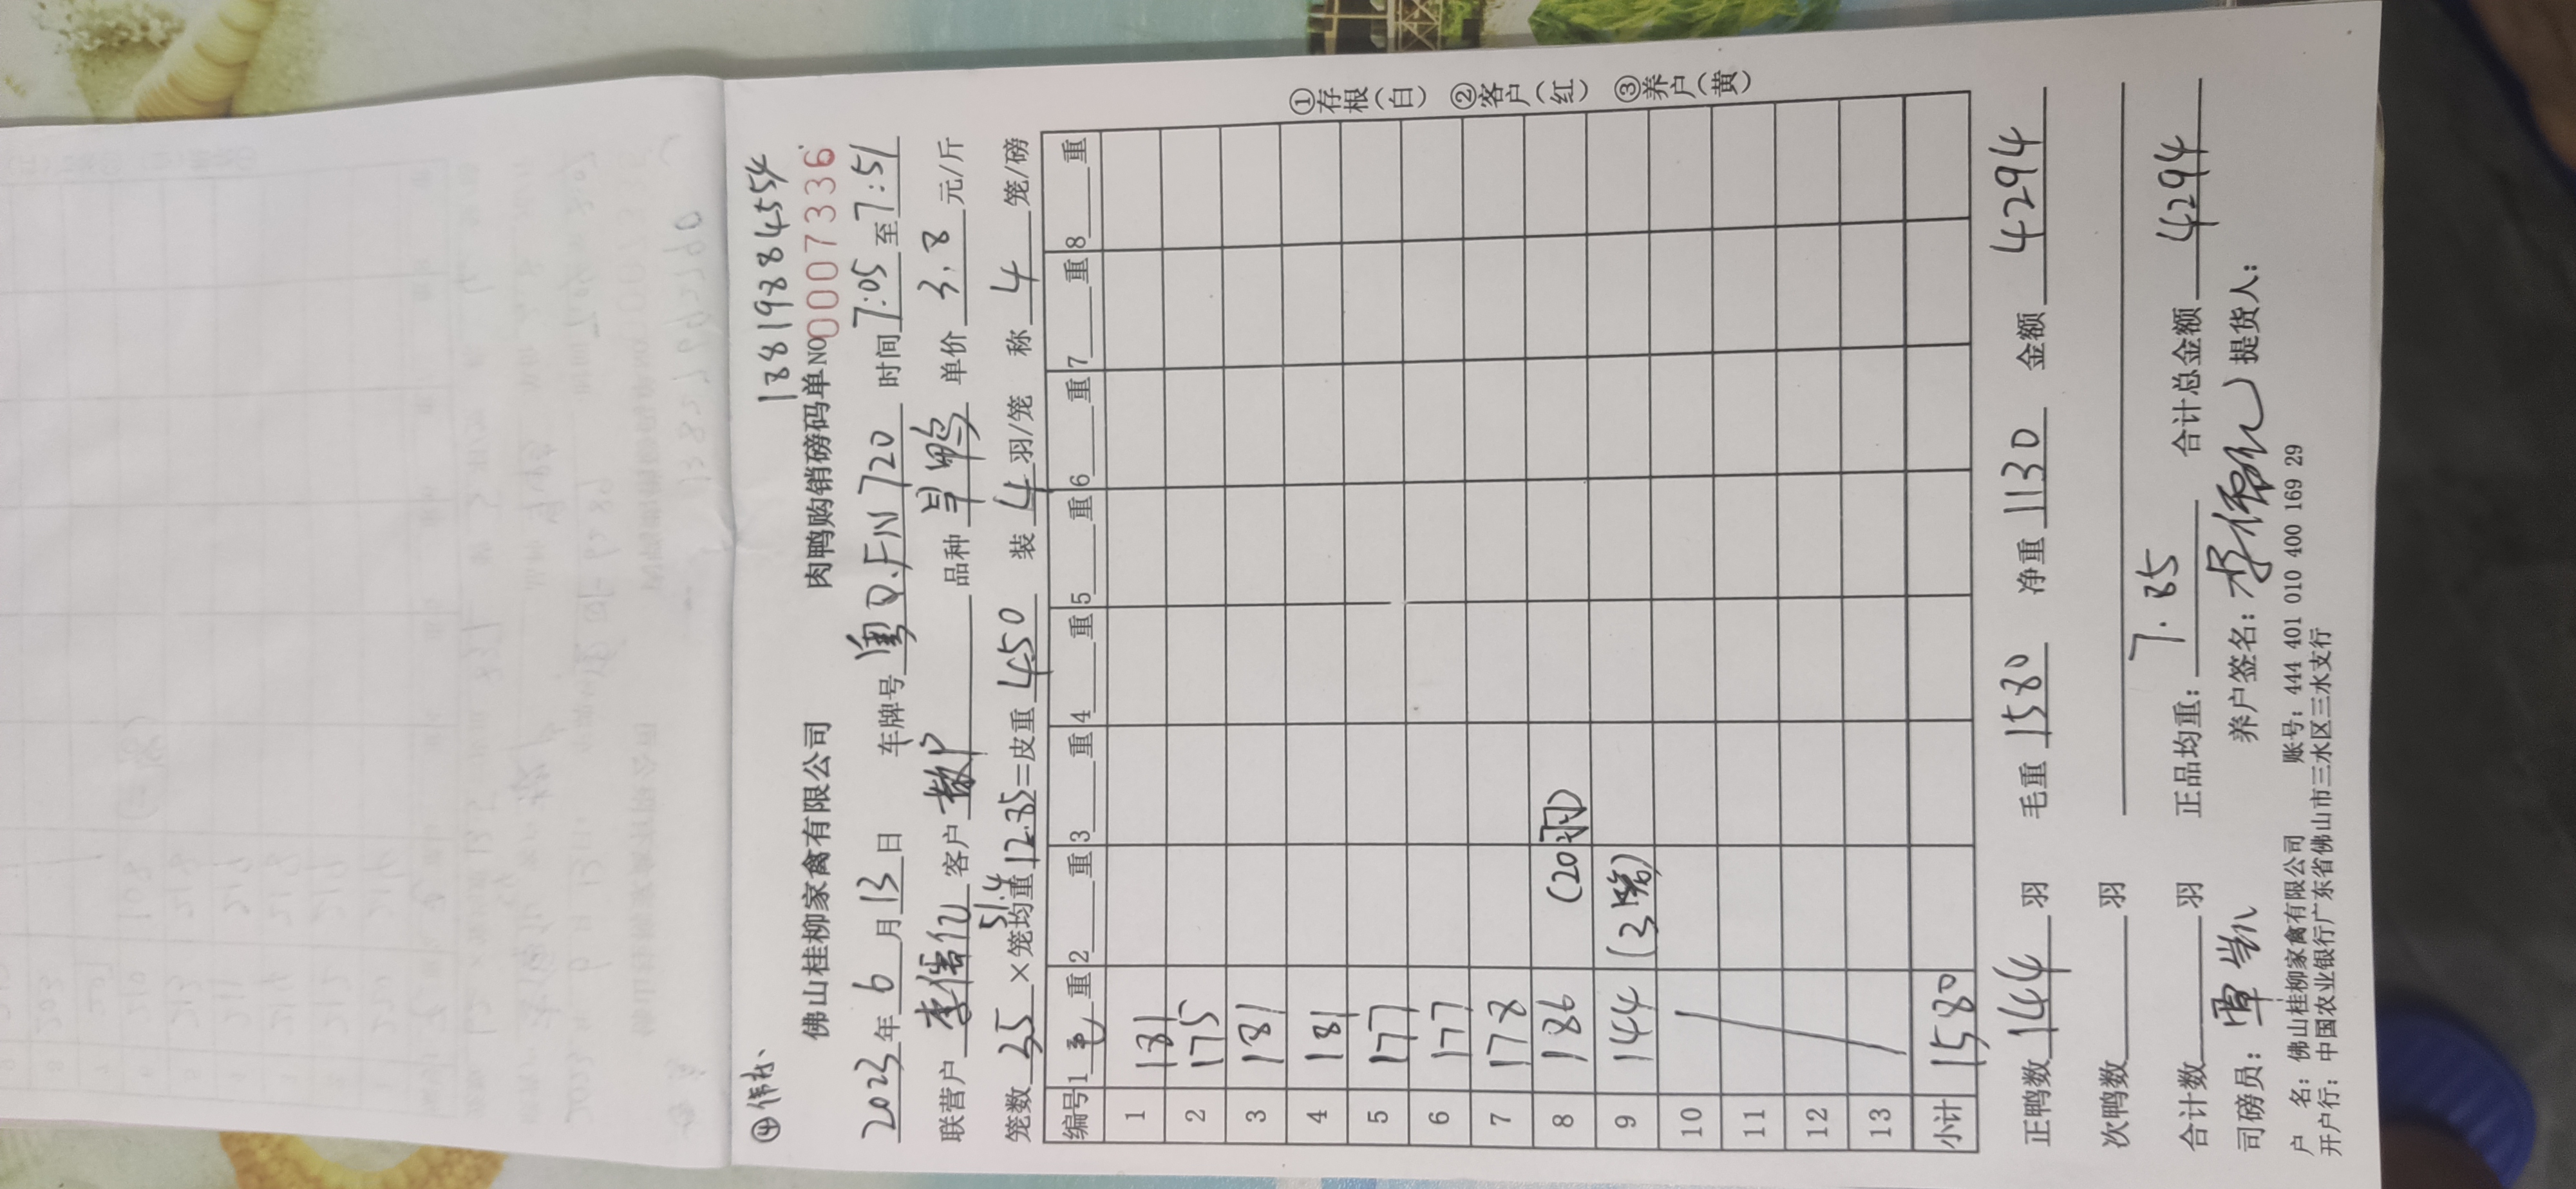 ④伟权、 18819884554
佛山桂柳家禽有限公司 肉鸭购销磅码单 NO 0007336
2023年6月13日 车牌号 粤Q.FN720 时间 7:05 至 7:51
联营户 李伟亿 客户 散户 品种 旱鸭 单价 3.8 元/斤
51.4
笼数 35 ×笼均重 12.85 =皮重 450 装 4 羽/笼 称 4 笼/磅
编号 1 毛 重 2 重 3 重 4 重 5 重 6 重 7 重 8 重
1 181
2 175
3 181
4 181
5 177
6 177
7 178
8 186 (20羽)
9 144 (3笼)
10
11
12
13
小计 1580
①存根(白) ②客户(红) ③养户(黄)
正鸭数 144 羽 毛重 1580 净重 1130 金额 4294
次鸭数 羽
合计数 羽 正品均重: 7.85 合计总金额 4294
司磅员: 覃凯 养户签名: 李伟亿 提货人:
户 名: 佛山桂柳家禽有限公司 账号: 444 401 010 400 169 29
开户行: 中国农业银行广东省佛山市三水区三水支行